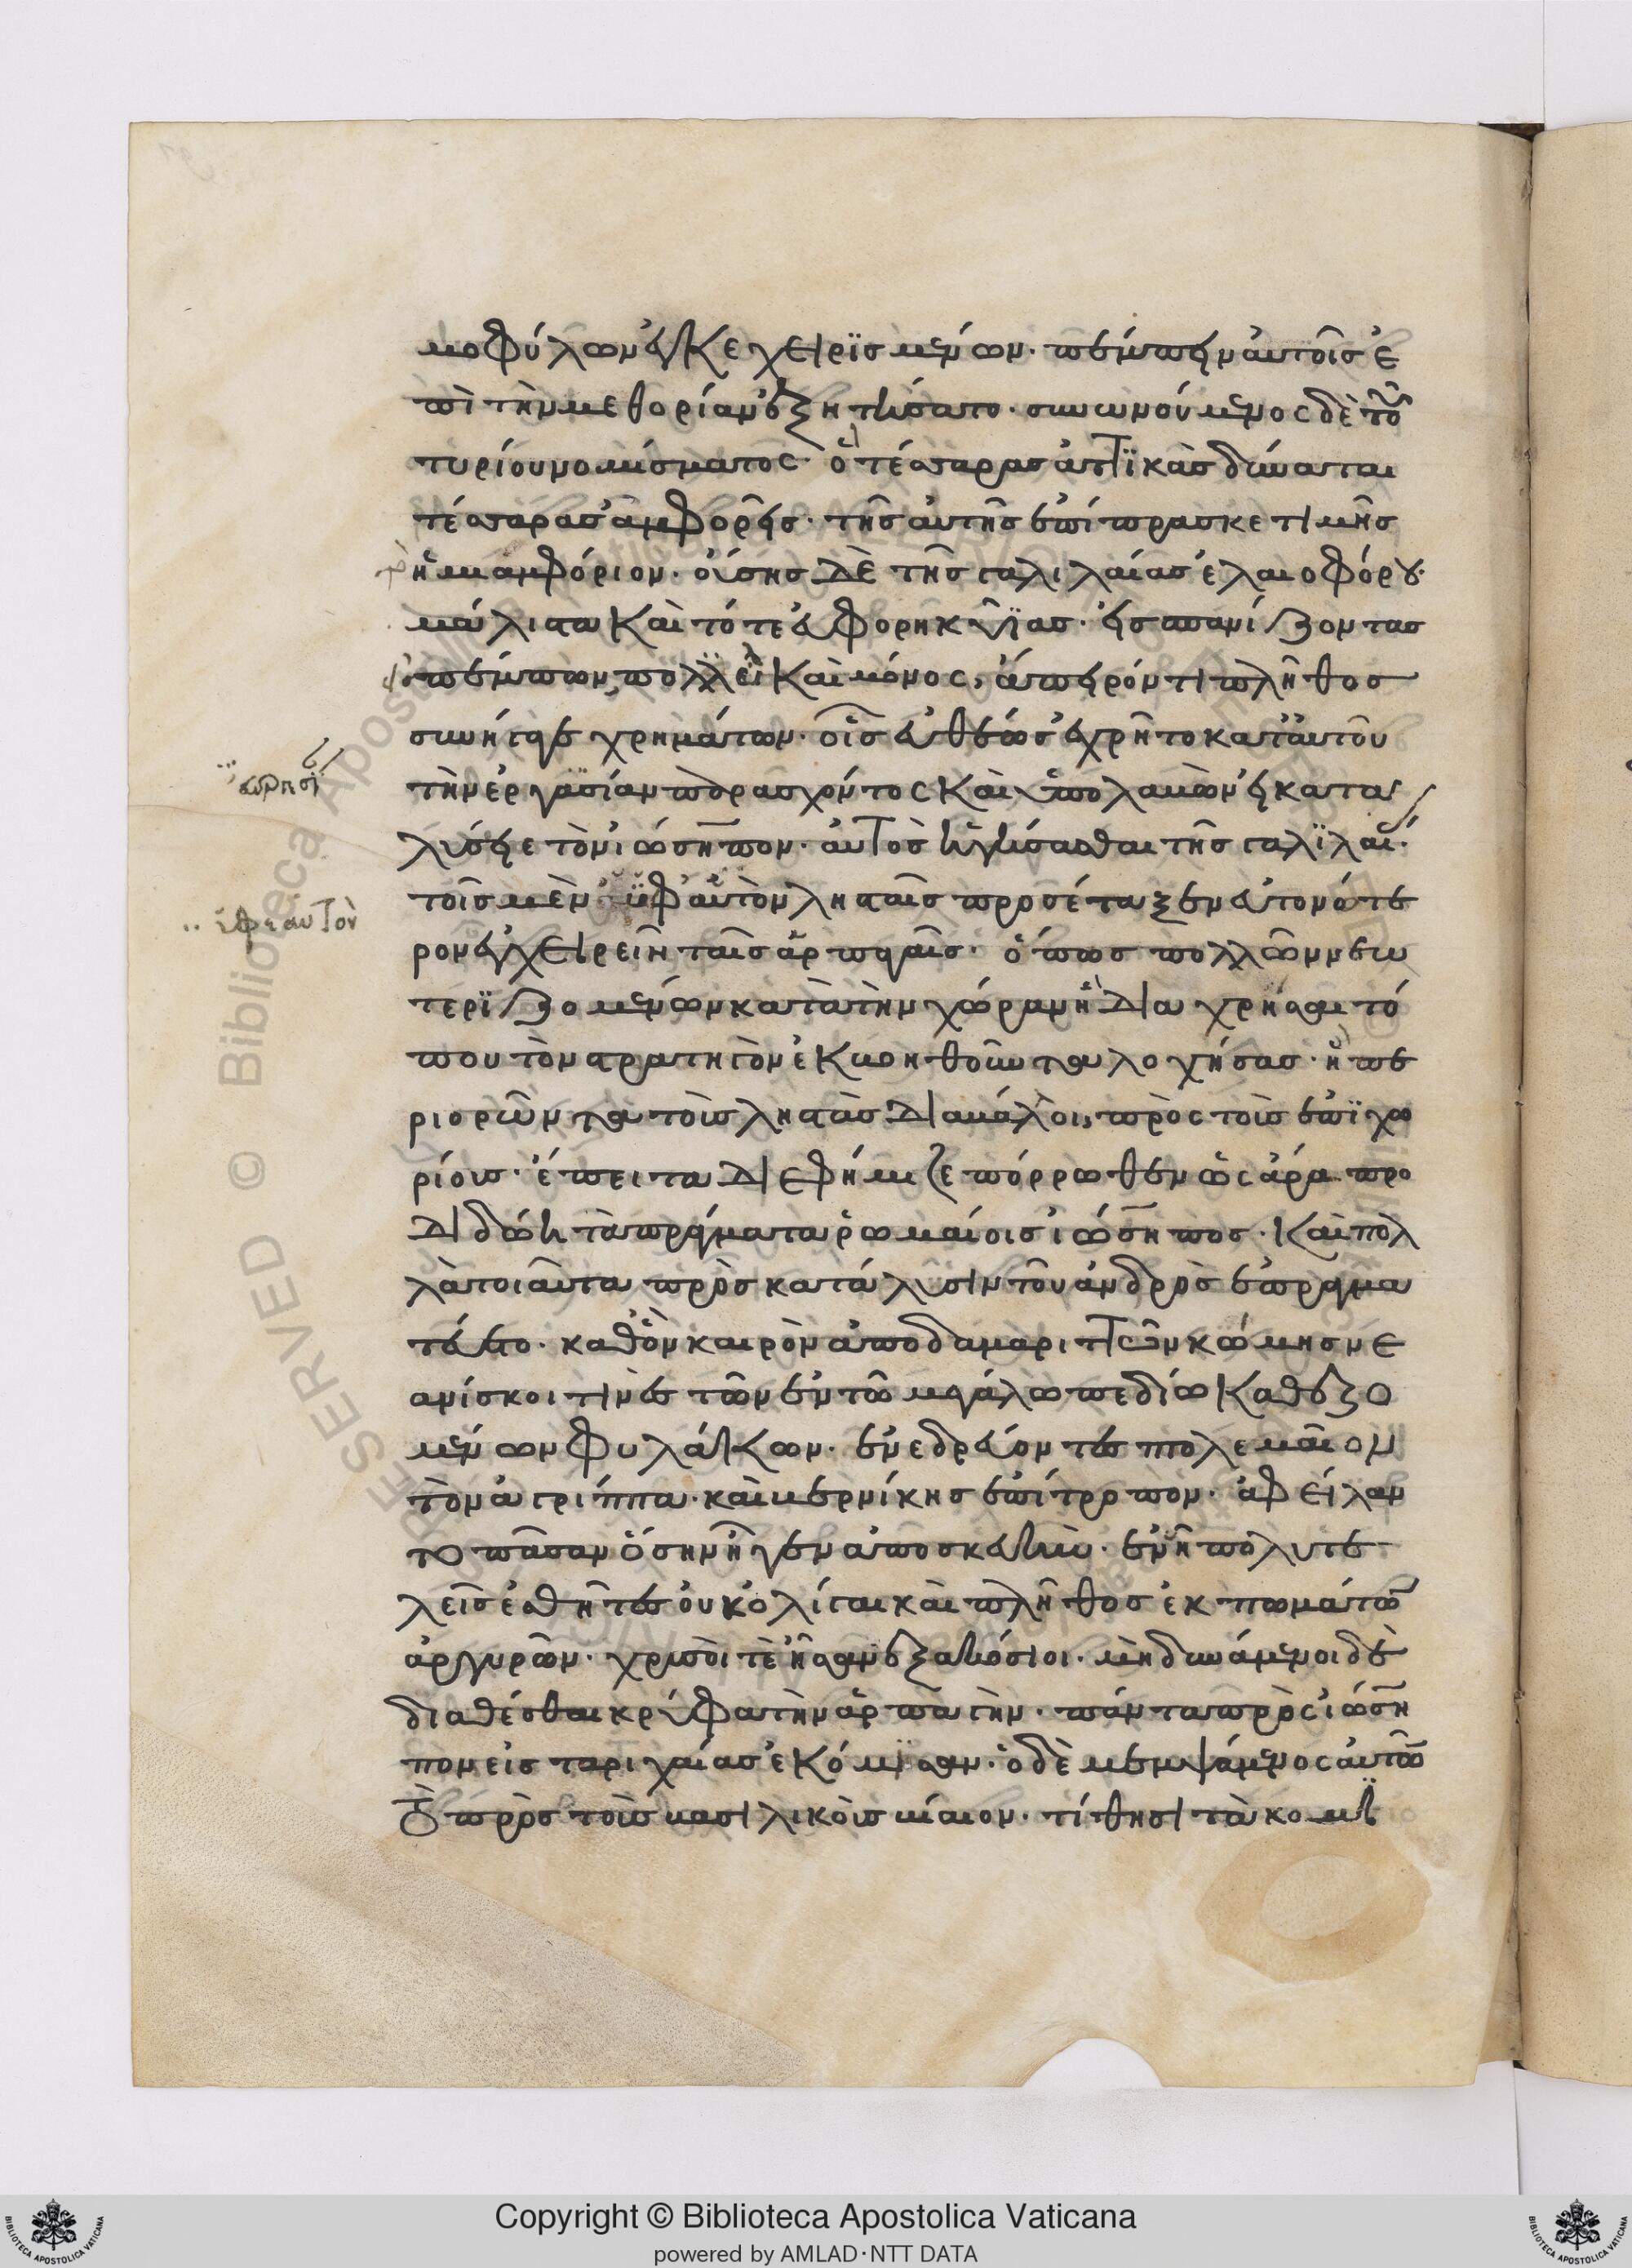 μοφύλων ἐγκεχειρϊσμένων. πέμπειν αὐτοῖς ἐ
πὶ τὴν μεθορίαν ἐξῃτήσατο. συνωνούμενος δὲ τοῦ
τυρίου νομίσματος· ὃ τέσσαρας ἀττϊκὰς δύναται
τέσσαρας ἀμφορεῖς· τῆς αὐτῆς ἐπίπρασκε τιμῆς
ἡμιαμφόριον. οὔσης δὲ τῆς γαλιλαίας ἐλαιοφόρου.
μάλιστα καὶ τότε εὐφορηκυΐας. εἰς σπανίζοντας
πέμπων πολλ εἰ καὶ μόνος, ἄπειρόν τι πλῆθος
συνήγαγε χρημάτων. οἷς εὐθέως ἐχρῆτο κατ αὐτοῦ
ὠρησ
τὴν ἐργασίαν παρασχόντος καὶ ὑπολαβὼν εἰ κατα
λύσειε τὸν ἰώσηπον. αὐτὸς ἡγήσασθαι τῆς γαλϊλαί.
ἐφ εαυτὸν
τοῖς μὲν ὑφ αὑτὸν λησταῖς προσέταξεν εὐτονώτε
ρον ἐγχειρεῖν ταῖς ἁρπαγαῖς. ὅπως πολλῶν νεω
τερϊζομένων κατὰ τὴν χώραν ἢ διαχρήσαιτό
που τὸν στρατηγὸν ἐκβοηθοῦντα λοχήσας. ἢ πε
ριορῶντα τοὺς λῃστὰς διαβάλλοι, πρὸς τοὺς ἐπϊχω
ρίους. ἔπειτα διεφήμιζε πόρρωθεν ὡς ἄρα προ
διδοίη τὰ πράγματα ῥωμαίοις ἰώσηπος. καὶ πολ
λὰ τοιαῦτα πρὸς κατάλυσιν τοῦ ἀνδρὸς ἐπραγμα
τεύετο. καθ ὃν καιρὸν ἀπο δαμαριττῶν κώμης νε
ανίσκοι τινὲς τῶν ἐν τῶ μεγάλω πεδίω καθεζο
μένων φυλάκων. ἐνεδρεύοντες πτολεμαῖον
τὸν ἀγρίππα. καὶ βερνίκης ἐπίτροπον. ἀφείλαν
το πᾶσαν ὅσην ἦγεν ἀποσκευήν. ἐν ἧ πολυτε
λεῖς ἐσθῆτες οὐκ ὀλίγαι καὶ πλῆθος ἐκπωμάτων
ἀργυρῶν. χρυσοῖ τὲ ἦσαν ἑξακόσιοι. μὴ δυνάμενοι δὲ
διαθέσθαι κρύφα τὴν ἁρπαγὴν. πάντα πρὸς ἰώση
πον εἰς ταριχαίας ἐκόμϊσαν. ὁ δὲ μεμψάμενος αὐτῶν
τὸ πρὸς τοὺς βασιλικοὺς βίαιον. τίθησι τὰ κομι